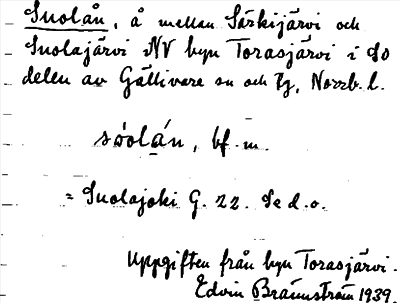 Suolån, å mellan Särkijärvi och
Suolajärvi NV byn Torasjärvi i So
delen av Gällivare sn och tg, Norrb. l.
sóolán, bf. m.
= Suolajoki G. 22. Se d. o.
Uppgiften från byn Torasjärvi.
Edvin Brännström 1939.